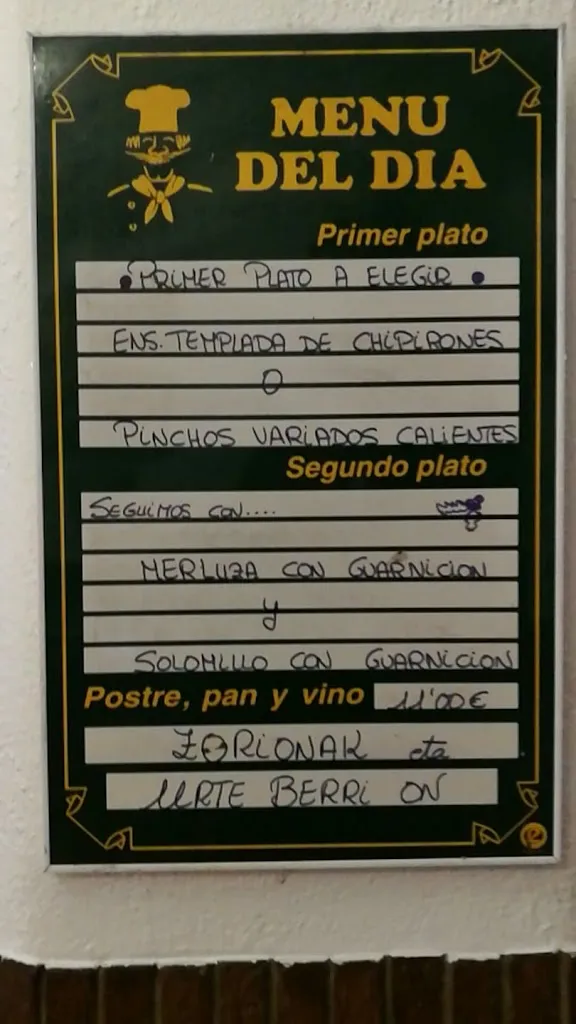 MENU
DEL DIA
Primer plato
• PRIMER PLATO A ELEGIR •
ENS. TEMPLADA DE CHIPIRONES
O
PINCHOS VARIADOS CALIENTES
Segundo plato
SEGUIMOS CON....
MERLUZA CON GUARNICION
y
SOLOMILLO CON GUARNICION
Postre, pan y vino 11'00€
ZORIONAK eta
URTE BERRI ON